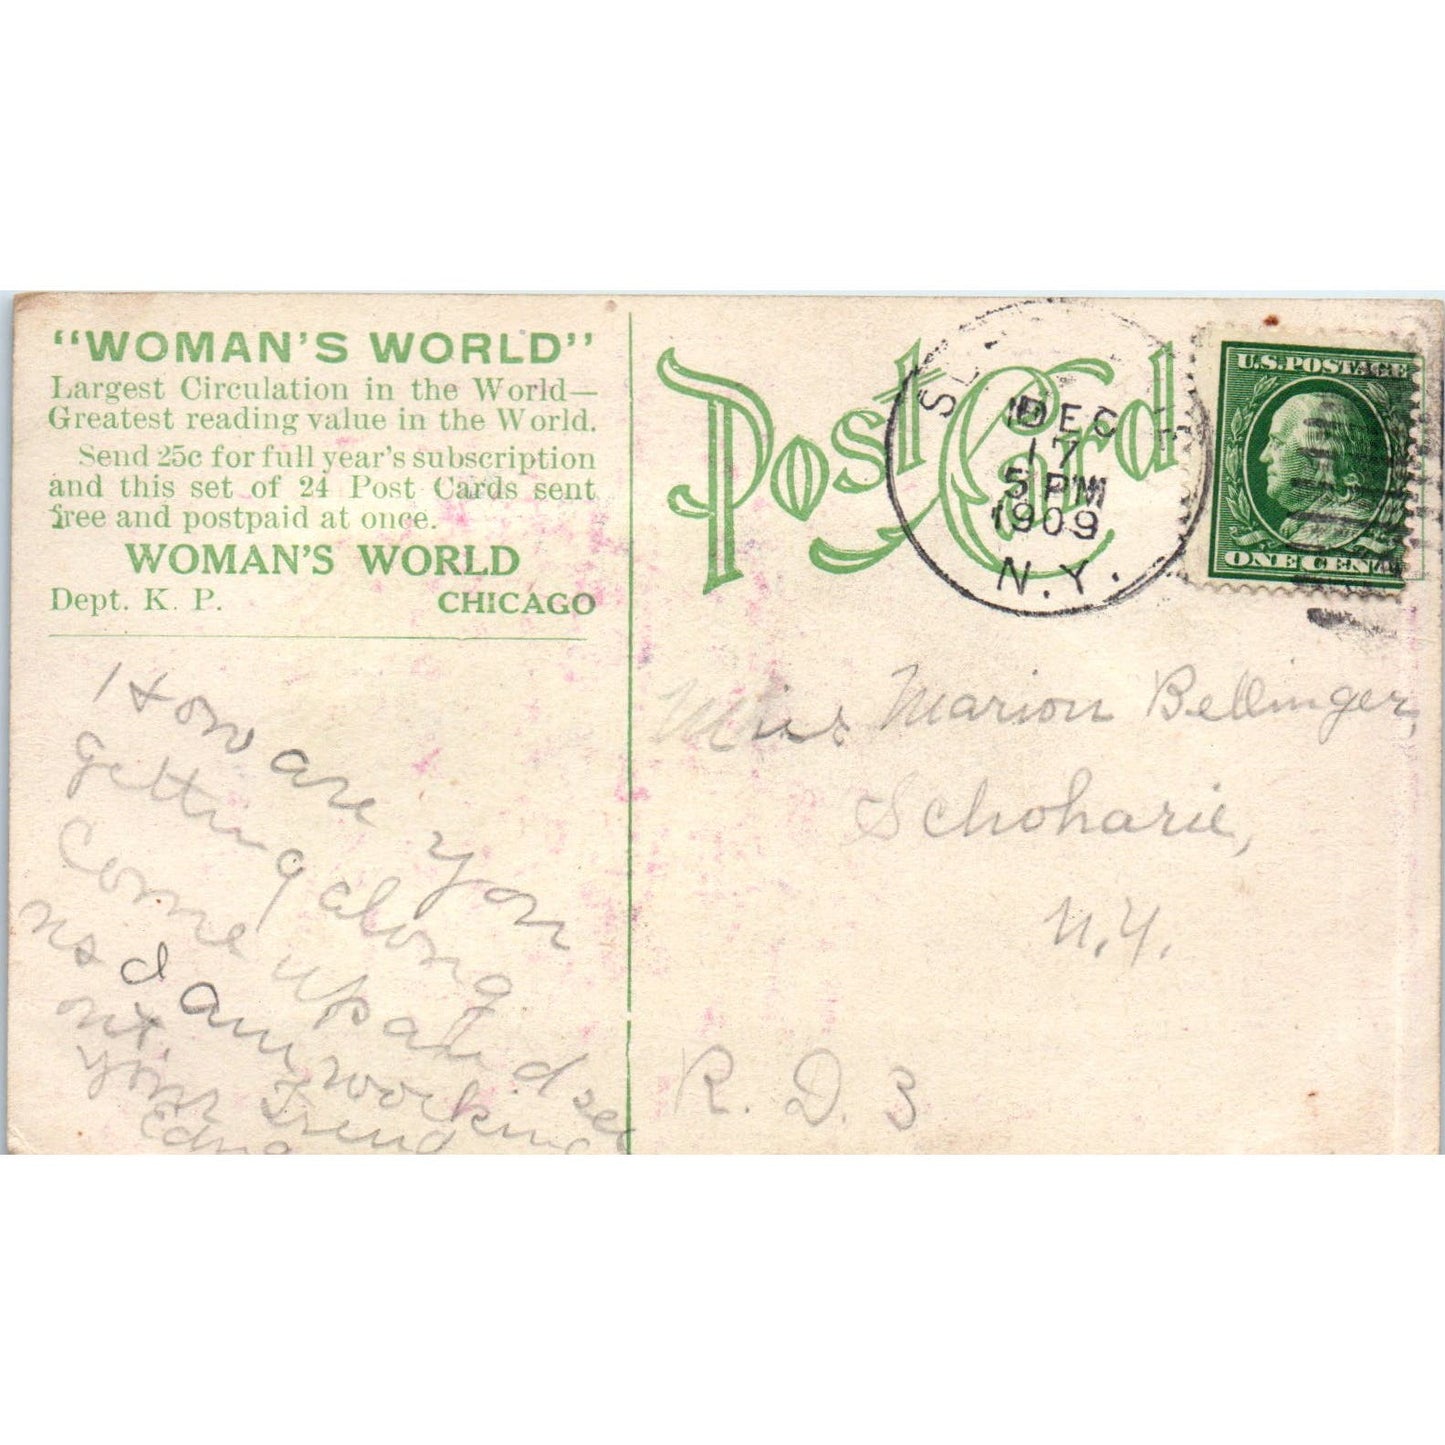 "WOMAN'S WORLD"
Largest Circulation in the World—
Greatest reading value in the World.
Send 25c for full year's subscription
and this set of 24 Post Cards sent
free and postpaid at once.
WOMAN'S WORLD
Dept. K. P. CHICAGO
Post Card
DEC
17
5 PM
1909
N.Y.
U.S. POSTAGE
ONE CENT
How are you
getting along
Come up and see
us I am working
out.
Your Frend
Edna
Miss Marion Bellinger,
Schoharie,
N.Y.
R. D. 3